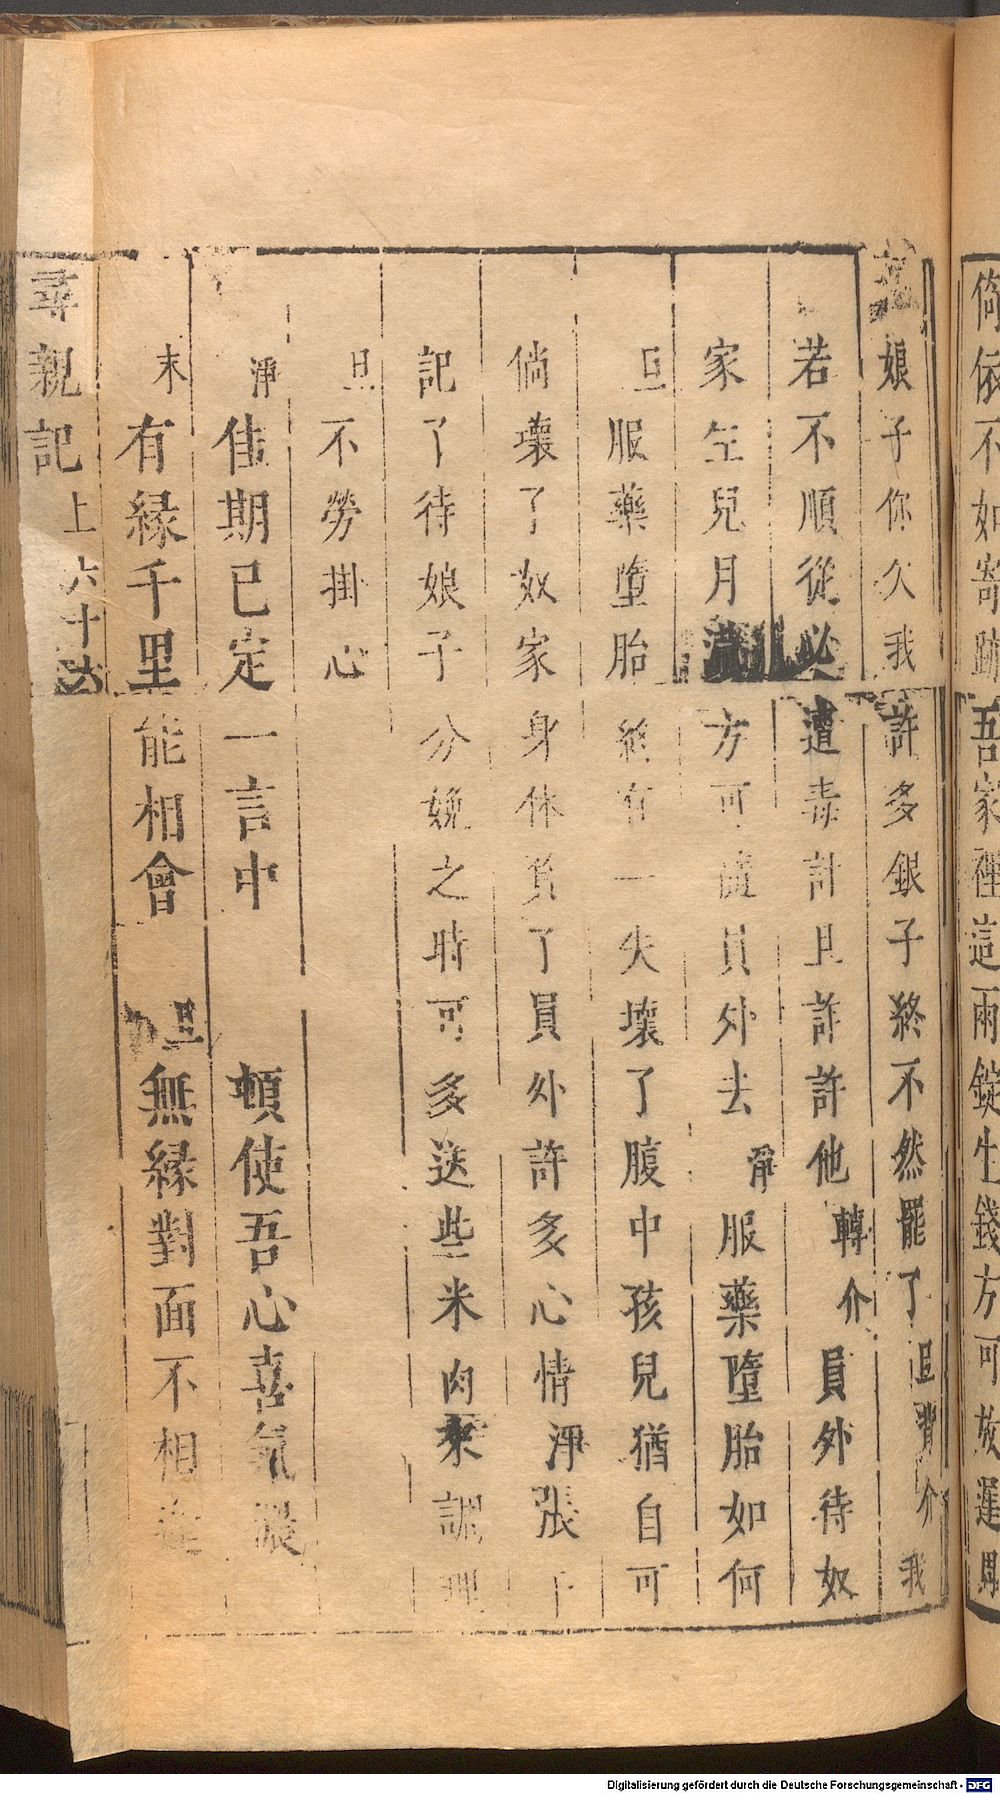 倚依不如寄跡吾家裡這兩錠生錢方可放遲
娘子你欠我許多銀子終不然罷了旦背介我
若不順從必遭毒計且許許他轉介員外待奴
家生兒月滿方可隨員外去淨服藥墮胎如何
旦服藥墮胎終有一失壞了腹中孩兒猶自可
倘壞了奴家身体負了員外許多心情淨張千
記了待娘子分娩之時可多送些米肉來調理
旦不勞掛心
淨佳期已定一言中頓使吾心喜氣濃
末有緣千里能相會旦無緣對面不相逢
尋親記上六十
Digitalisierung gefördert durch die Deutsche Forschungsgemeinschaft - DFG